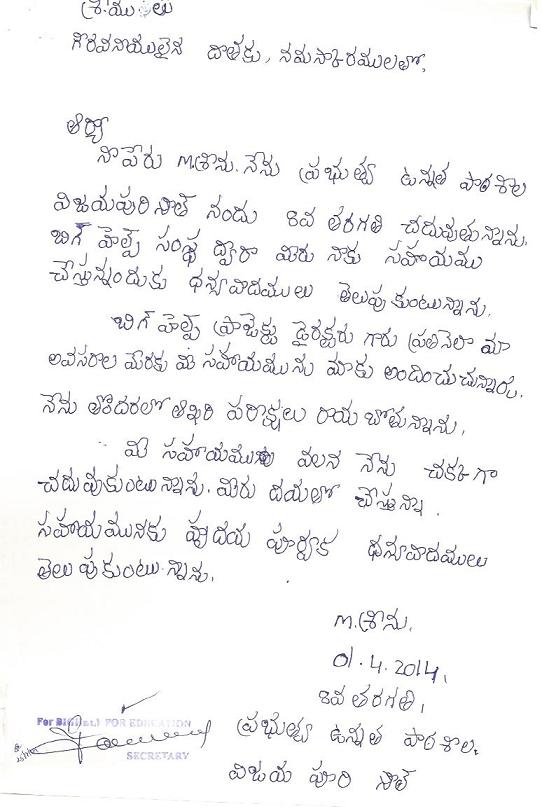 గౌరవనీయులైన దాతకు, నమస్కారములతో,
ఆర్యా
నా పేరు M.శ్రీను. నేను ప్రభుత్వ ఉన్నత పాఠశాల
విజయపురి సౌత్ నందు 8వ తరగతి చదువుతున్నాను.
బిగ్ హెల్ప్ సంస్థ ద్వారా మీరు నాకు సహాయము
చేస్తున్నందుకు ధన్యవాదములు తెలుపుకుంటున్నాను.
బిగ్ హెల్ప్ ప్రాజెక్టు డైరక్టరు గారు ప్రతినెలా మా
అవసరాల మేరకు మీ సహాయమును మాకు అందించుచున్నారు.
నేను తొందరలో ఆఖరి పరీక్షలు రాయబోతున్నాను.
మీ సహాయము వలన నేను చక్కగా
చదువుకుంటున్నాను. మీరు దయతో చేస్తున్న
సహాయమునకు హృదయ పూర్వక ధన్యవాదములు
తెలుపుకుంటున్నాను.
M.శ్రీను.
01.4.2014,
8వ తరగతి,
ప్రభుత్వ ఉన్నత పాఠశాల,
విజయ పూరి సౌత్
FOR EDUCATION
SECRETARY